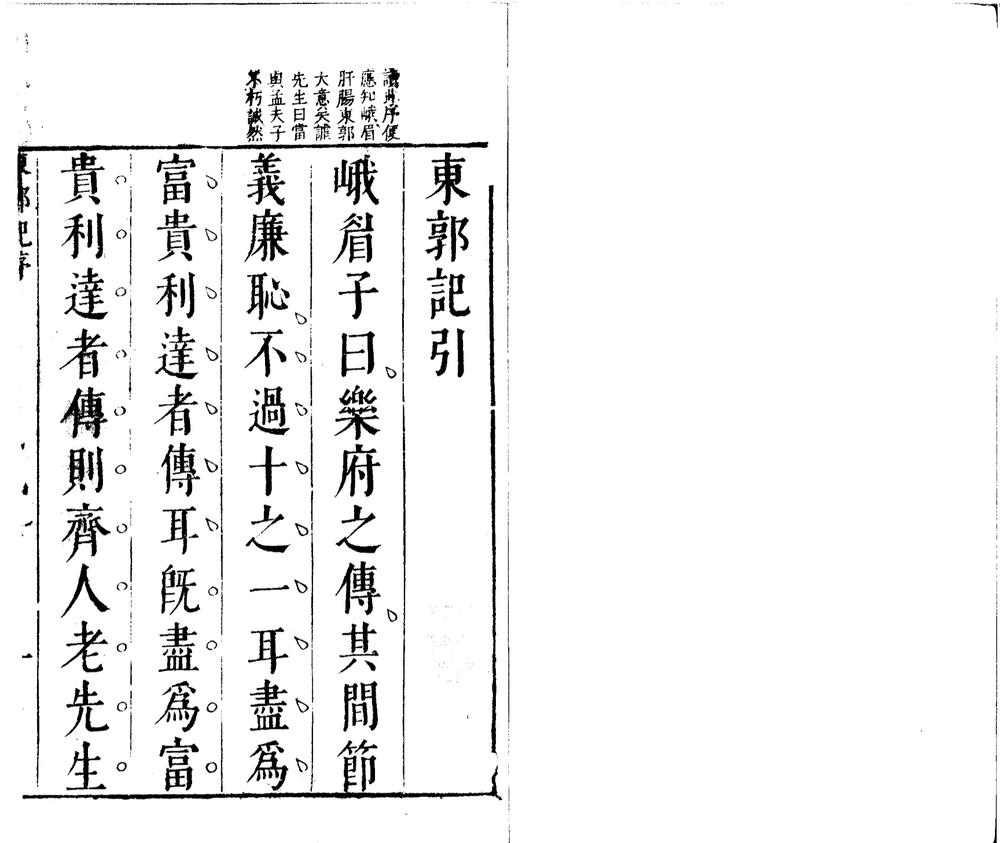 讀此序便
應知峨眉
肝腸東郭
大意矣誰
先生曰當
與孟夫子
不朽誠然
東郭記引
峨眉子曰樂府之傳其間節
義廉恥不過十之一耳盡爲
富貴利達者傳耳既盡爲富
貴利達者傳則齊人老先生
東郭記序
一